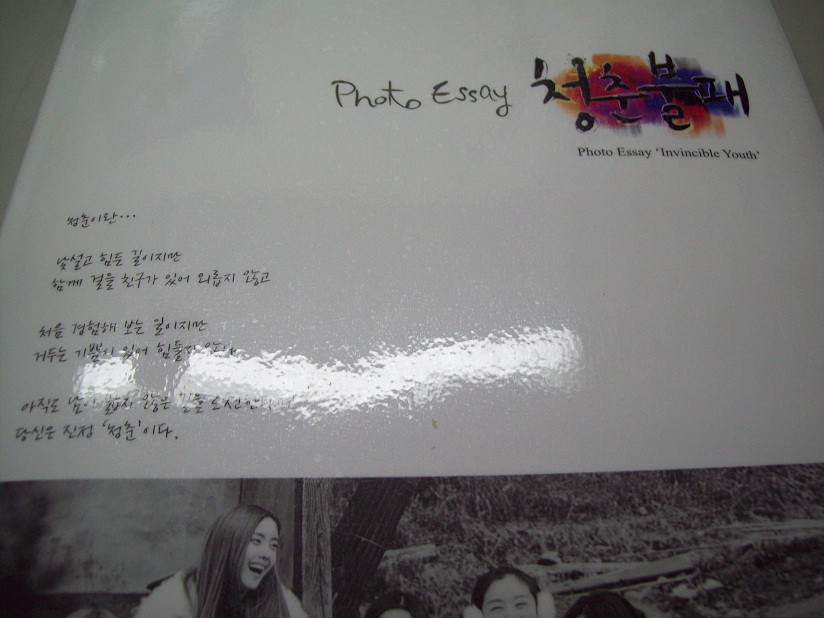 Photo Essay 청춘불패
Photo Essay 'Invincible Youth'
청춘이란...
낯설고 힘든 길이지만
함께 걸을 친구가 있어 외롭지 않고
처음 경험해 보는 일이지만
거두는 기쁨이 있어 힘들지 않다
아직도 남이 밟지 않은 길을
당신은 진정 '청춘'이다.